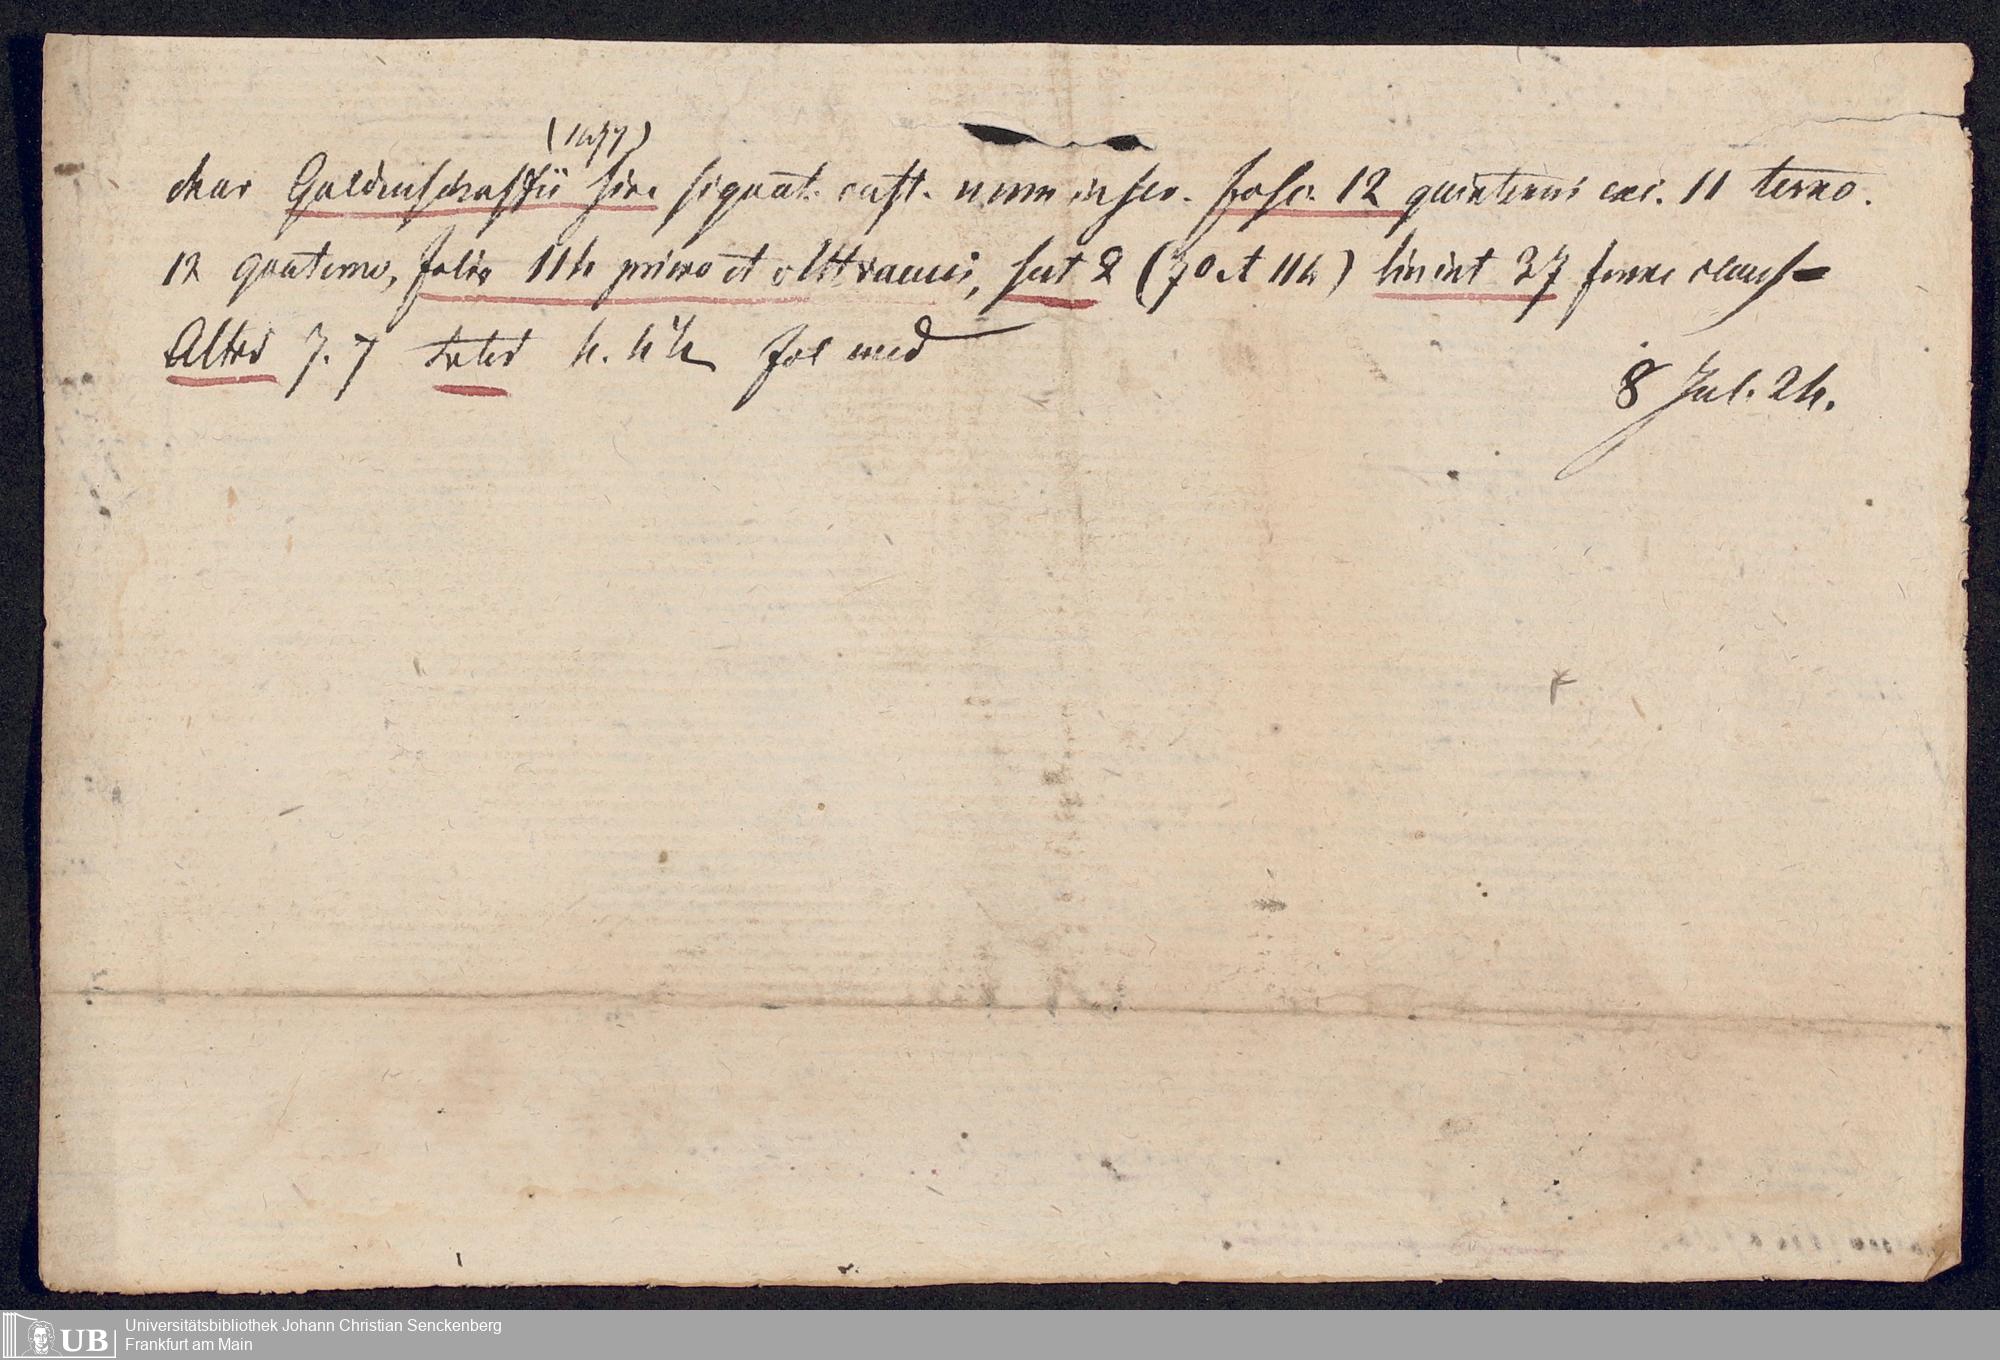 (1477)
char Goldenschaffii sine signat. cust. num inser. fasc. 12 quinterni exc. 11 terno.
12 quaterno, folia 114 primo et ultt vacuis, sunt 2 (70 et 114) lineint 37 sine
Alter 7. 7 fol med
8 Jul. 24.
UB
Universitätsbibliothek Johann Christian Senckenberg
Frankfurt am Main